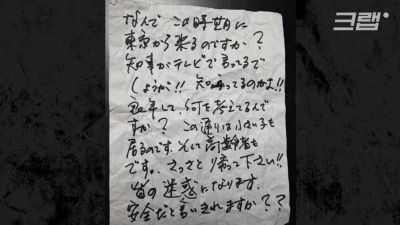 크랩
なんで この時期に
東京から来るのですか？
知事がテレビで言ってるで
しょうが！！ 知ってるのかよ！！
良い年して、何を考えてるんで
すか？ この通りは小さい子も
居るのです。そして高齢者も
です。さっさと帰って下さい！！
皆の迷惑になります。
安全だと言いきれますか？？